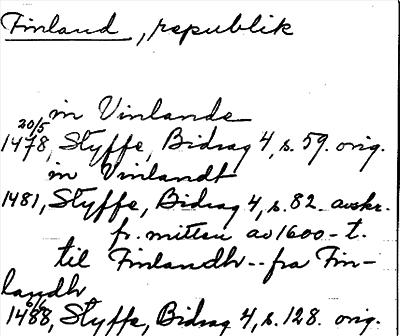 Finland, republik
in Vinlande
20/5
1478, Styffe, Bidrag 4, s. 59. orig.
in Vinlandt
1481, Styffe, Bidrag 4, s. 82. avskr.
fr. mitten av 1600-t.
til Finlandh -- fra Fin-
landh
1488, Styffe, Bidrag 4, s. 128. orig.